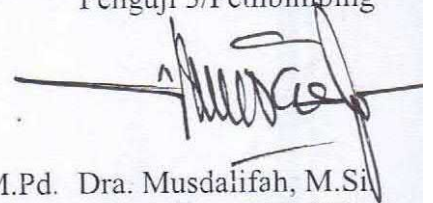 Penguji 3/Pembimbing
M.Pd. Dra. Musdalifah, M.Si